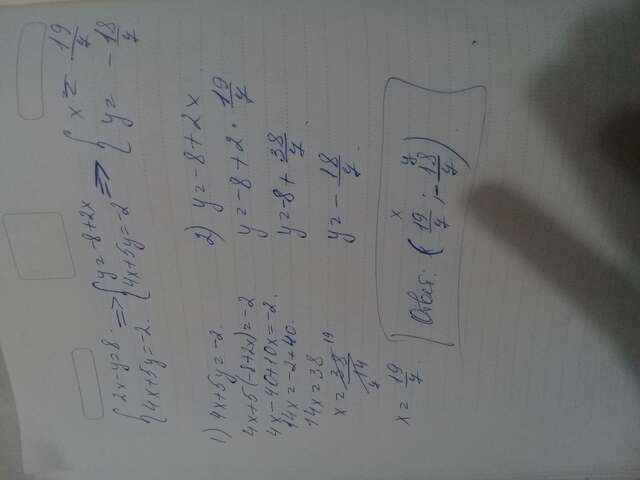 { 2x-y=8. => { y=-8+2x => { x= 19/7
{ 4x+5y=-2. { 4x+5y=-2 { y= -18/7
1) 4x+5y=-2.
4x+5(-8+2x)=-2
4x-40+10x=-2.
14x=-2+40.
14x=38
x= 38/14 19 7
x= 19/7
2) y=-8+2x
y=-8+2· 19/7
y=-8+ 38/7
y=- 18/7
x y
Ответ: ( 19/7 ; - 18/7 )